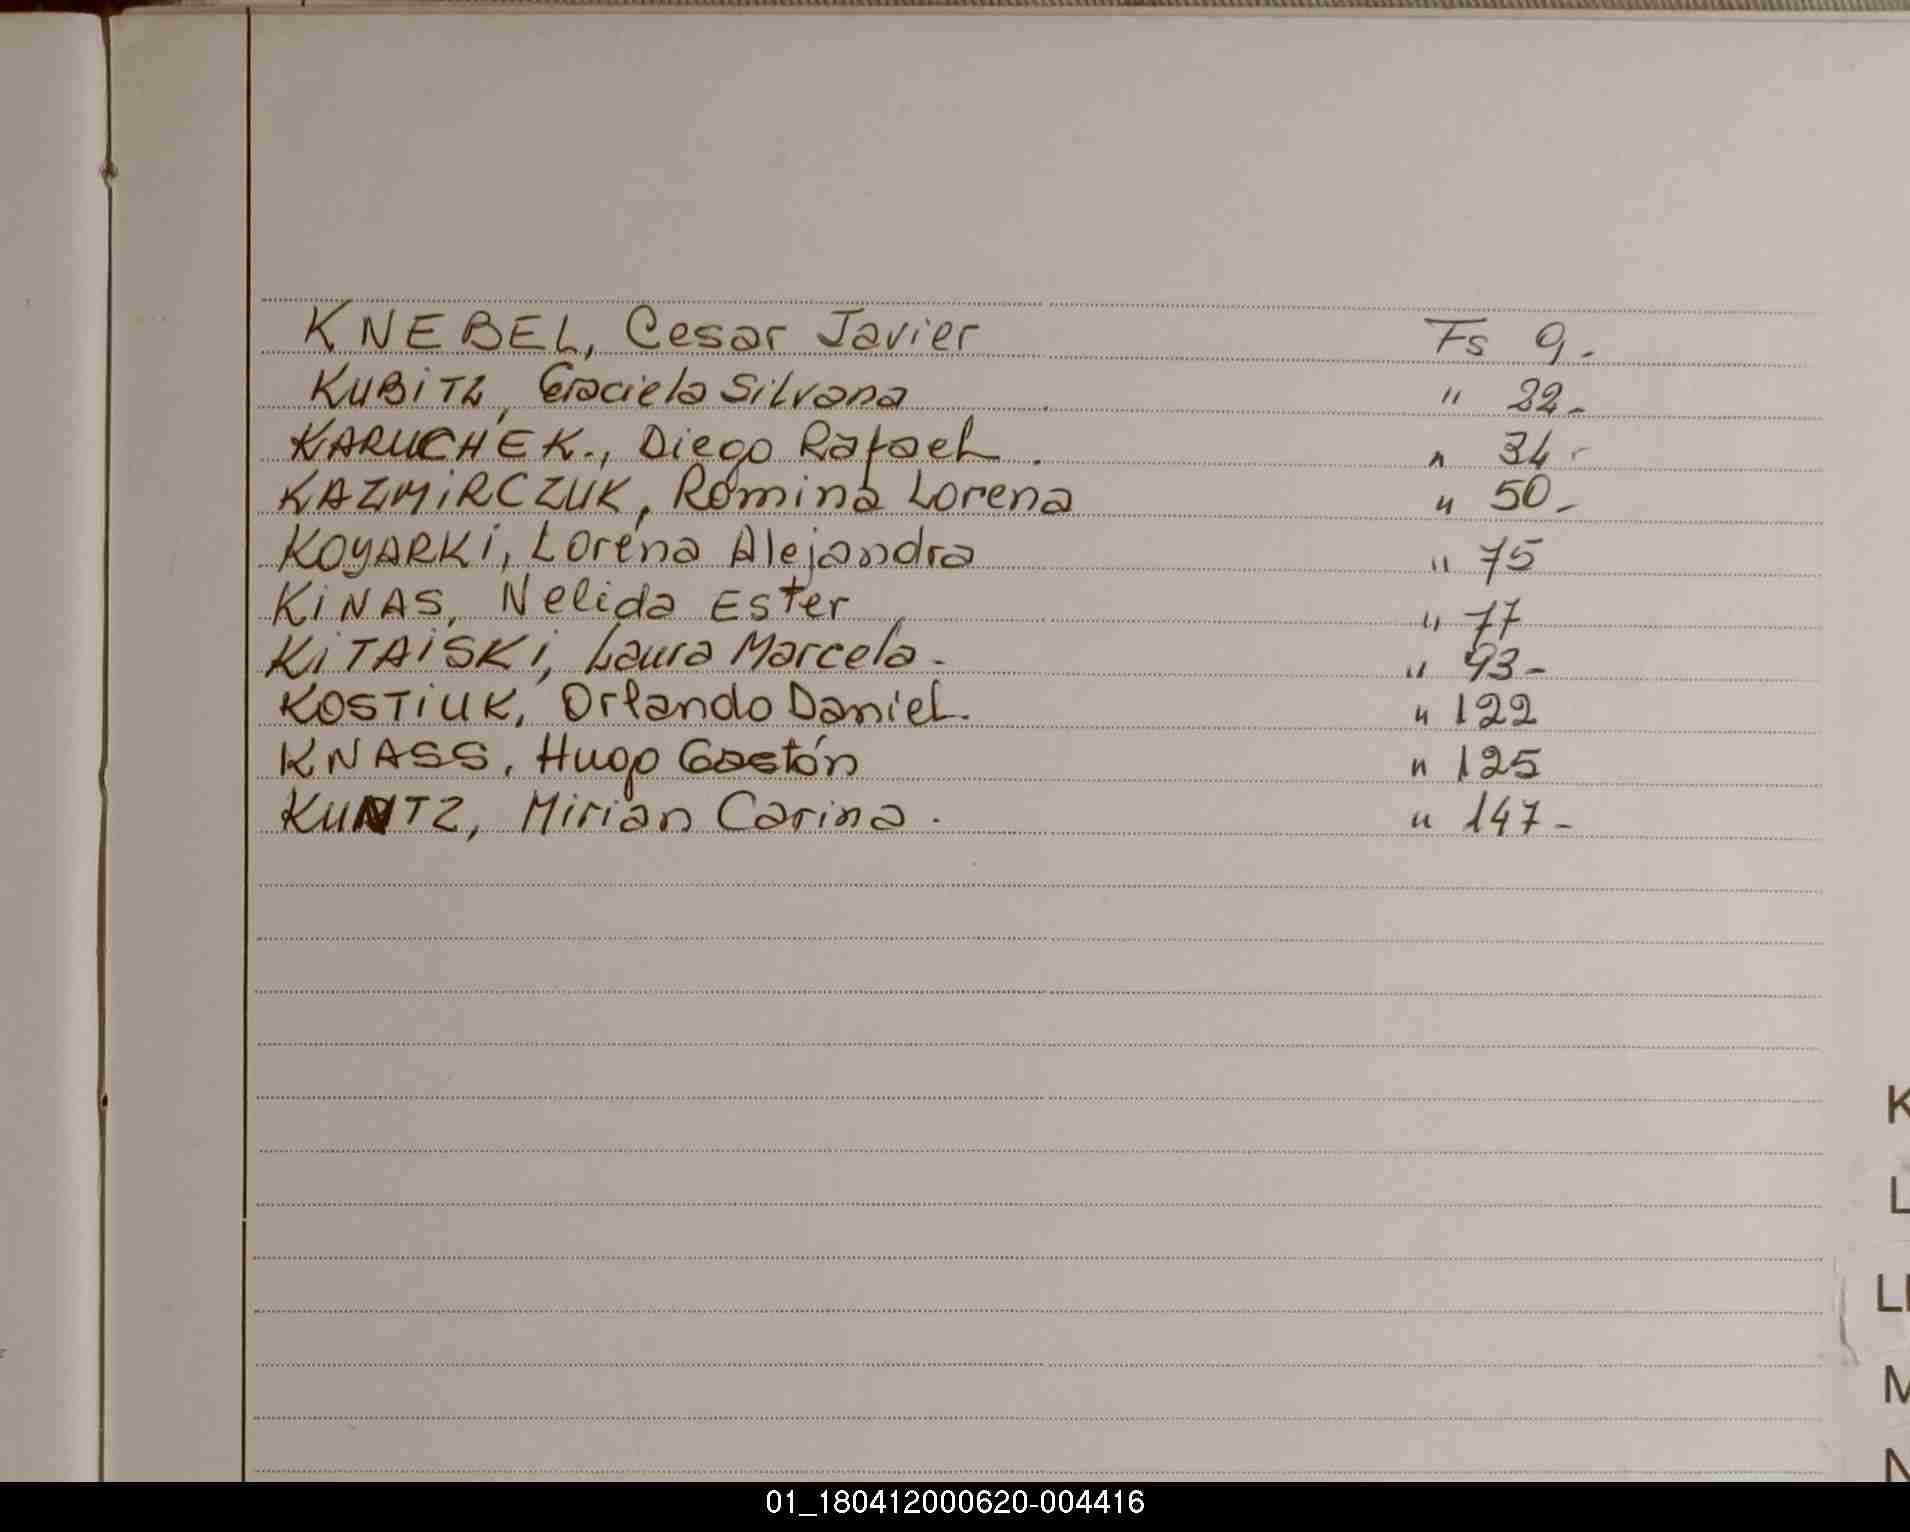 KNEBEL, Cesar Javier Fs 9.-
KUBITZ, Graciela Silvana " 22.-
KARUCHEK., Diego Rafael. " 34-
KAZMIRCZUK, Romina Lorena " 50.-
KOYARKI, Lorena Alejandra " 75
KINAS, Nelida Ester " 77
KITAISKI, Laura Marcela.- " 93-
KOSTIUK, Orlando Daniel. " 122
KNASS, Hugo Gastón " 125
KUNTZ, Mirian Carina. " 147-
K
L
LL
M
N
01_180412000620-004416